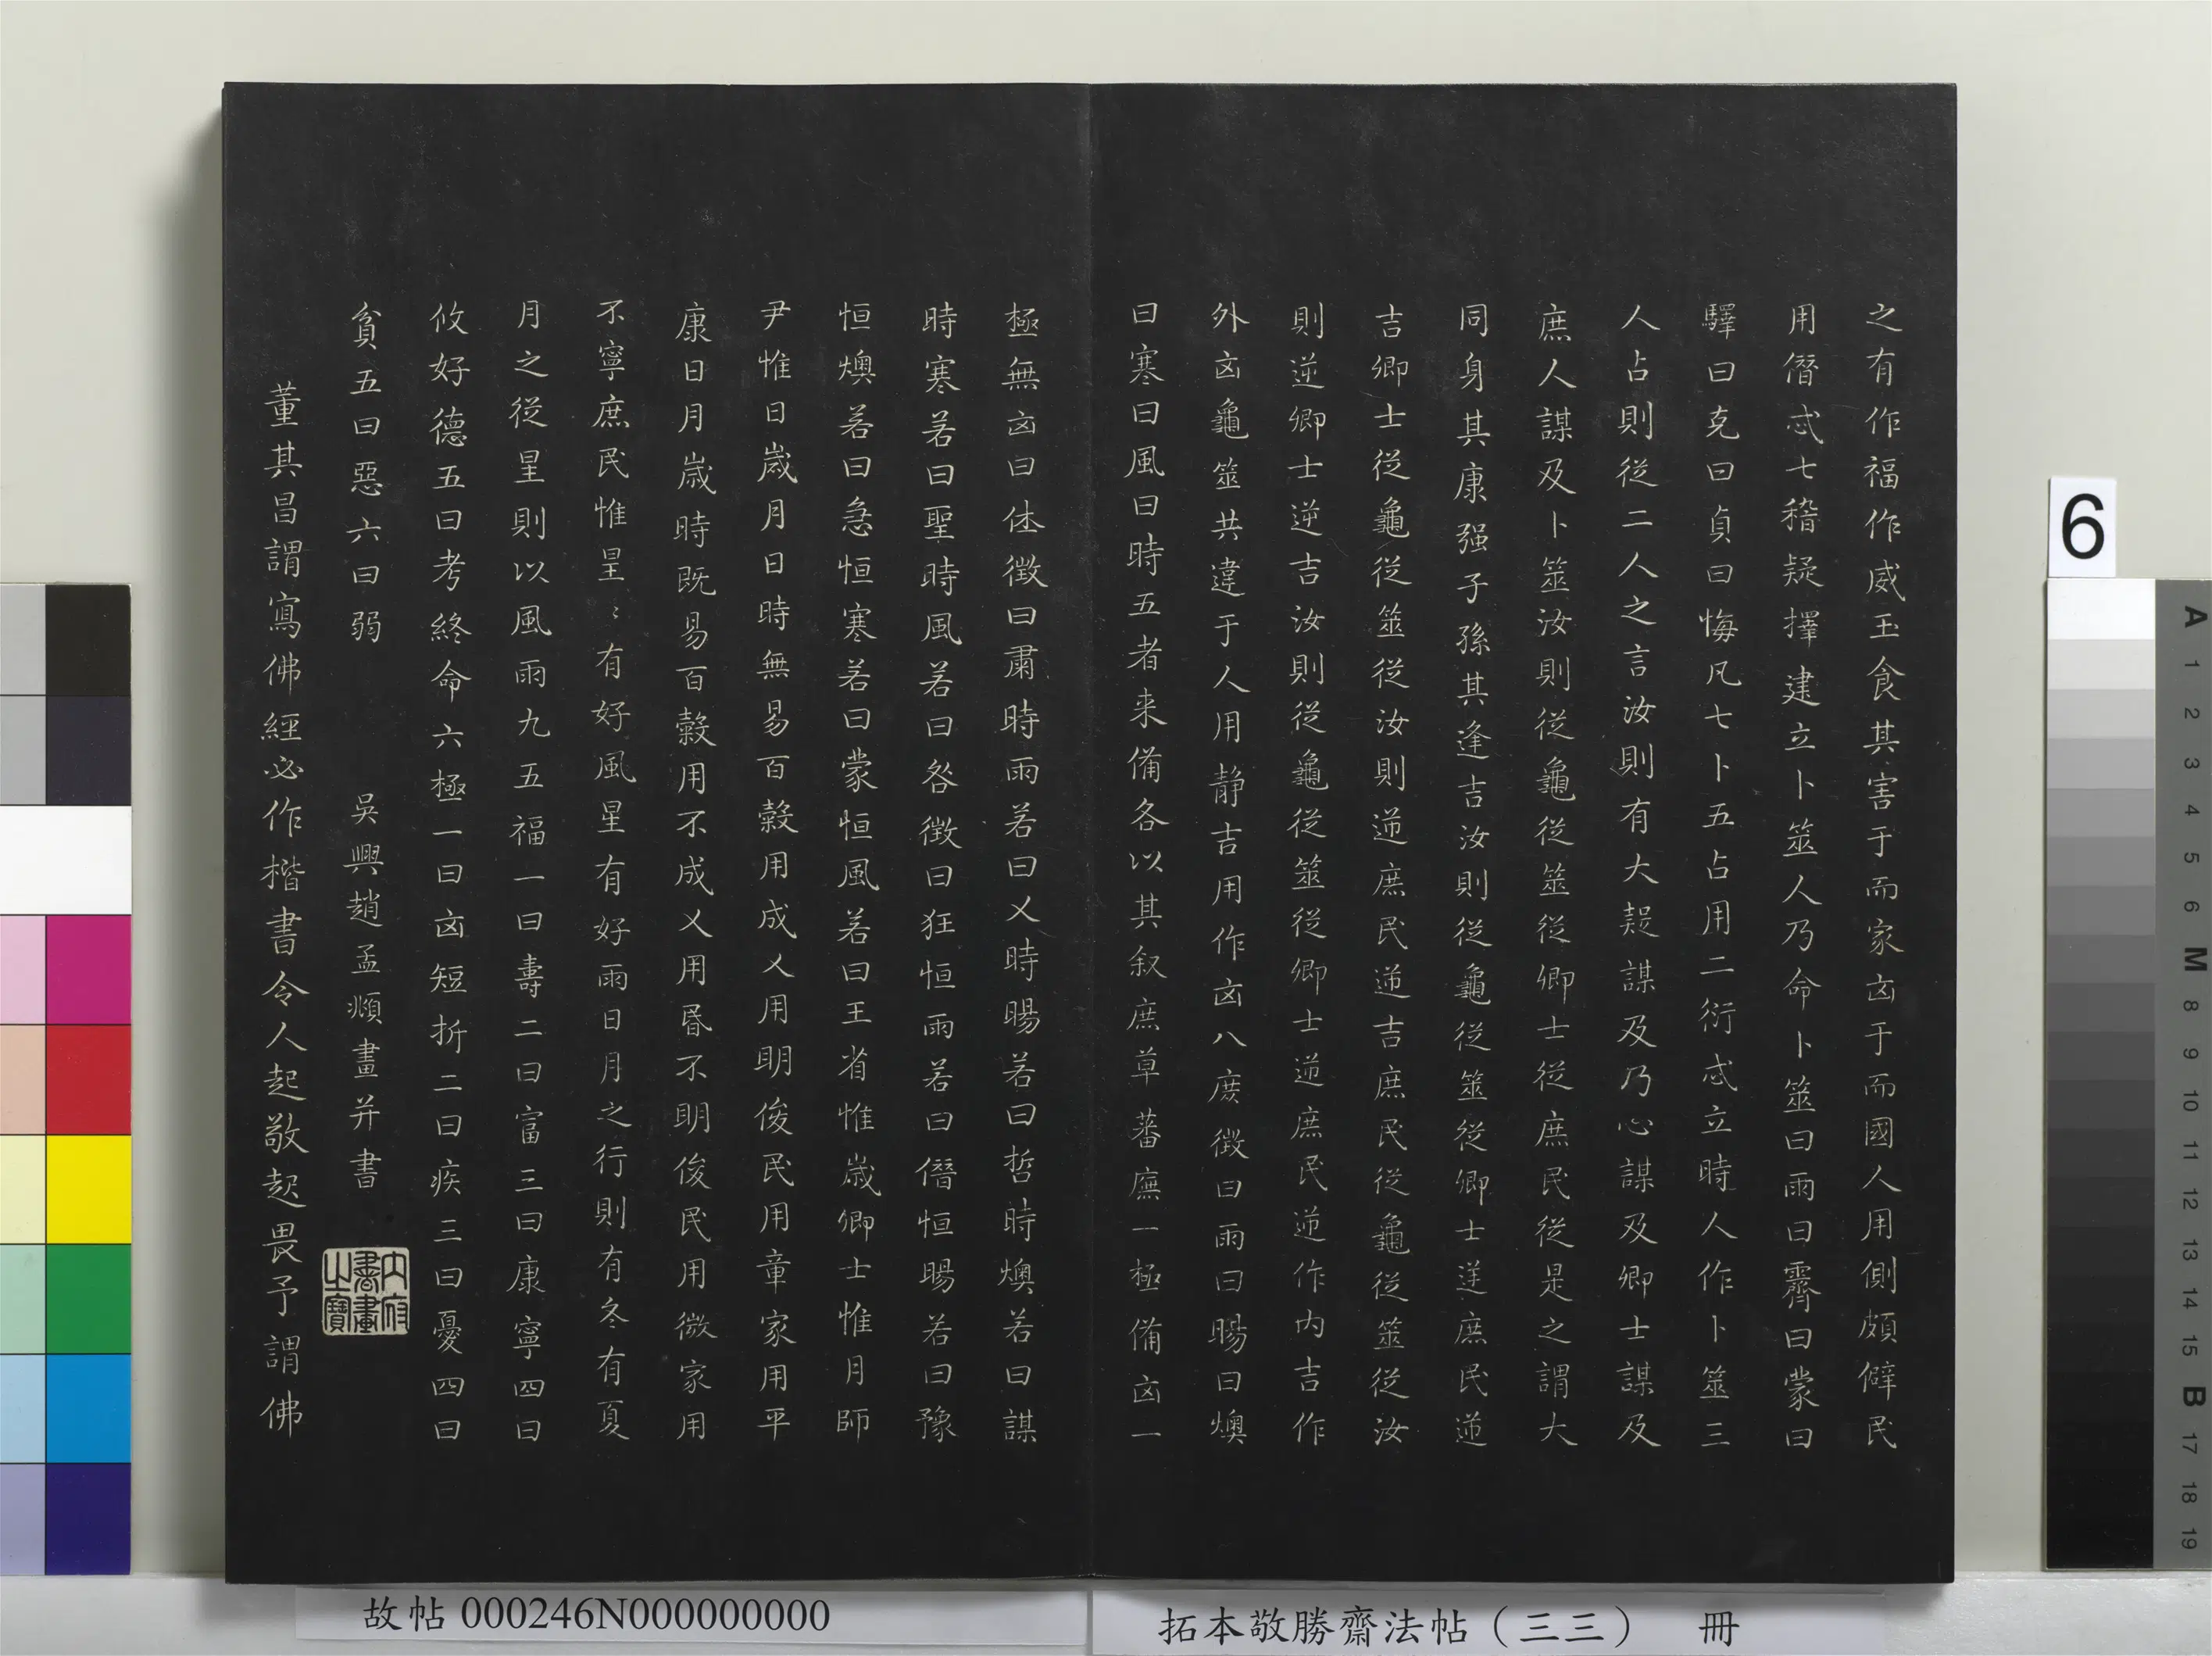 之有作福作威玉食其害于而家凶于而國人用側頗僻民
用僭忒七稽疑擇建立卜筮人乃命卜筮曰雨曰霽曰蒙曰
驛曰克曰貞曰悔凡七卜五占用二衍忒立時人作卜筮三
人占則從二人之言汝則有大疑謀及乃心謀及卿士謀及
庶人謀及卜筮汝則從龜從筮從卿士從庶民從是之謂大
同身其康强子孫其逢吉汝則從龜從筮從卿士逆庶民逆
吉卿士從龜從筮從汝則逆庶民逆吉庶民從龜從筮從汝
則逆卿士逆吉汝則從龜從筮從卿士逆庶民逆作内吉作
外凶龜筮共違于人用静吉用作凶八庶徵曰雨曰暘曰燠
曰寒曰風曰時五者来備各以其叙庶草蕃廡一極備凶一
極無凶曰休徵曰肅時雨若曰乂時暘若曰哲時燠若曰謀
時寒若曰聖時風若曰咎徵曰狂恒雨若曰僭恒暘若曰豫
恒燠若曰急恒寒若曰蒙恒風若曰王省惟歲卿士惟月師
尹惟日歲月日時無易百穀用成乂用明俊民用章家用平
康日月歲時既易百穀用不成乂用昬不明俊民用微家用
不寧庶民惟星〻有好風星有好雨日月之行則有冬有夏
月之從星則以風雨九五福一曰壽二曰富三曰康寧四曰
攸好德五曰考終命六極一曰凶短折二曰疾三曰憂四曰
貧五曰惡六曰弱 吳興趙孟頫畫并書
內府書畫之寶
董其昌謂寫佛經必作楷書令人起敬起畏予謂佛
6
A 1 2 3 4 5 6 M 8 9 10 11 12 13 14 15 B 17 18 19
故帖 000246N000000000
拓本敬勝齋法帖（三三） 冊